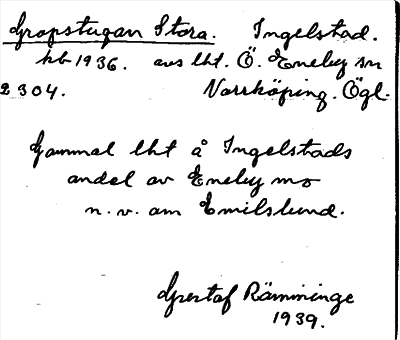 Gropstugan Stora. Ingelstad.
kb 1936. avs lht. Ö. Eneby sn
2304. Norrköping. Ögl.
Gammal lht å Ingelstads
andel av Eneby mo
n. v. om Emilslund.
Gustaf Rämminge
1939.